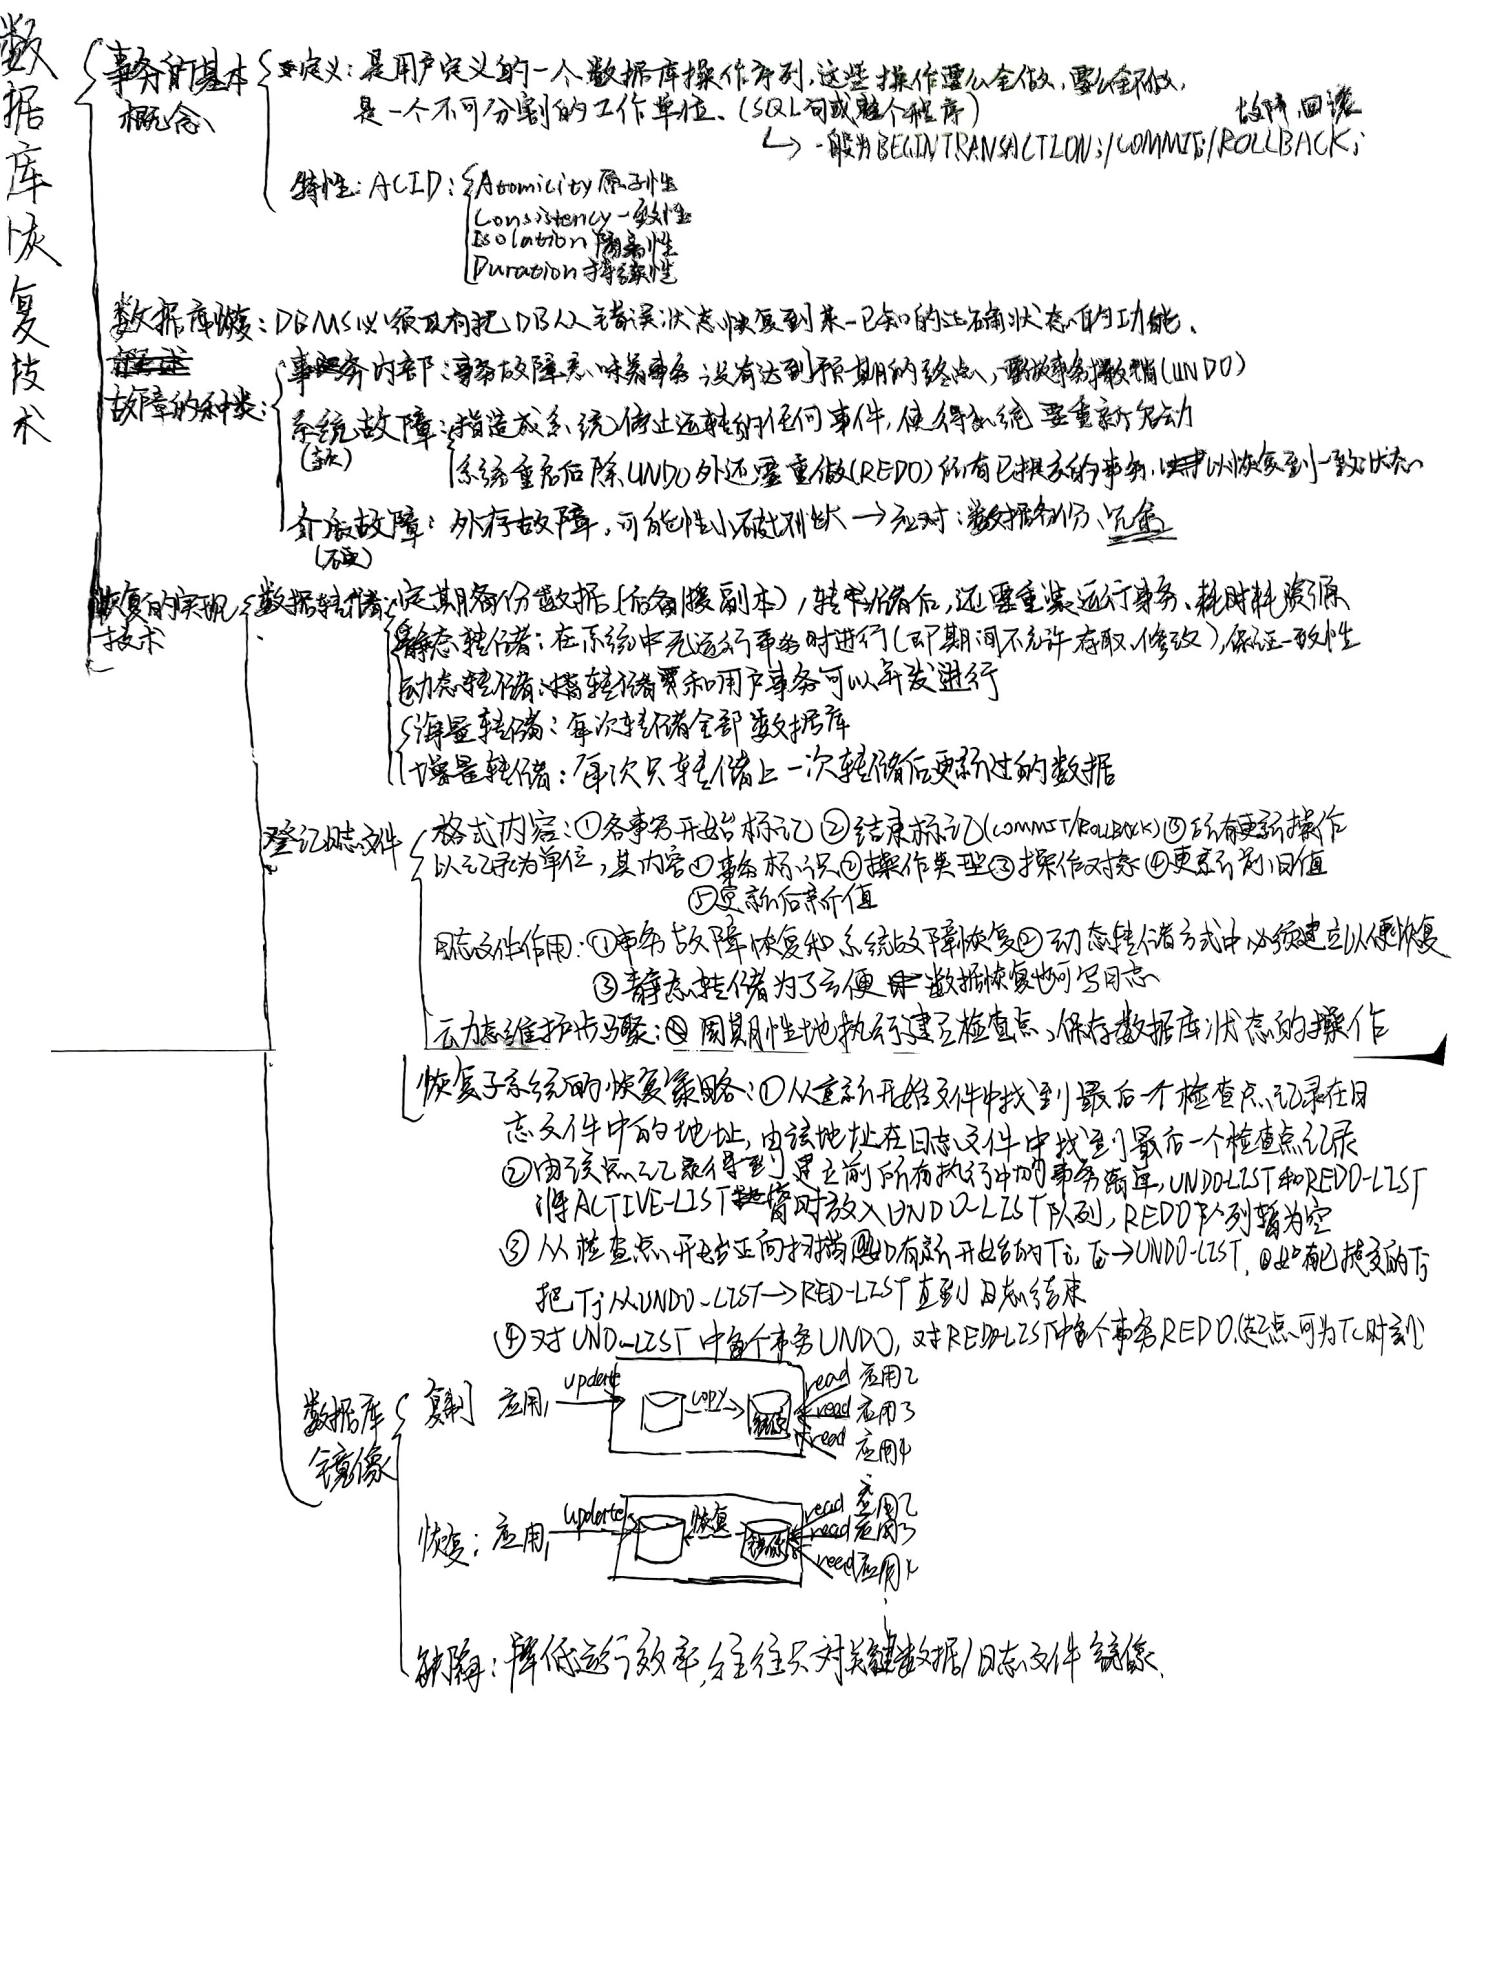 数据库恢复技术
事务的基本概念
定义：是用户定义的一个数据库操作序列，这些操作要么全做，要么全不做，
是一个不可分割的工作单位。（SQL句或整个程序）
故障,回滚
↳一般为BEGINTRANSACTION;/COMMIT;/ROLLBACK;
特性：ACID：Atomicity原子性
Consistency一致性
Isolation隔离性
Duration持续性
数据库恢复：DBMS必须具有把DB从错误状态恢复到某一已知的正确状态的功能、
故障的种类：
事务内部：事务故障意味着事务没有达到预期的终点，要做事务撤消(UNDO)
系统故障：指造成系统停止运转的任何事件，使得系统要重新启动
(软)
系统重启后除UNDO外还需要重做(REDO)所有已提交的事务，以恢复到一致状态
介质故障：外存故障，可能性小破坏性大→应对：数据备份、冗余
(硬)
恢复的实现技术
数据转储：定期备份数据(后备/援副本)，转储后，还要重装运行事务、耗时耗资源
静态转储：在系统中无运行事务时进行(即期间不允许存取、修改)，保证一致性
动态转储：指转储和用户事务可以并发进行
海量转储：每次转储全部数据库
增量转储：每次只转储上一次转储后更新过的数据
登记日志文件
格式内容：①各事务开始标记②结束标记(COMMIT/ROLLBACK)③所有更新操作
以记录为单位，其内容①事务标识②操作类型③操作对象④更新前旧值
⑤更新后新值
日志文件作用：①事务故障恢复和系统故障恢复②动态转储方式中必须建立以便恢复
③静态转储为了方便数据恢复也可写日志
动态维护步骤：周期性地执行建立检查点、保存数据库状态的操作
恢复子系统的恢复策略：①从重新开始文件中找到最后一个检查点记录在日
志文件中的地址，由该地址在日志文件中找到最后一个检查点记录
②由该点记录得到建立前所有执行中的事务清单，UNDO-LIST和REDO-LIST
将ACTIVE-LIST暂时放入UNDO-LIST队列，REDO队列暂为空
③从检查点开始正向扫描 如有新开始的Ti，Ti→UNDO-LIST，如有已提交的Tj
把Tj从UNDO-LIST→RED-LIST直到日志结束
④对UNDO-LIST中每个事务UNDO，对REDO-LIST中每个事务REDO.(起点可为Tc时刻)
数据库镜像
复制 应用1 update copy 镜像 read 应用2
read 应用3
read 应用4
恢复：应用1 update 恢复 镜像 read 应用2
read 应用3
read 应用4
缺陷：降低运行效率，往往只对关键数据/日志文件镜像、